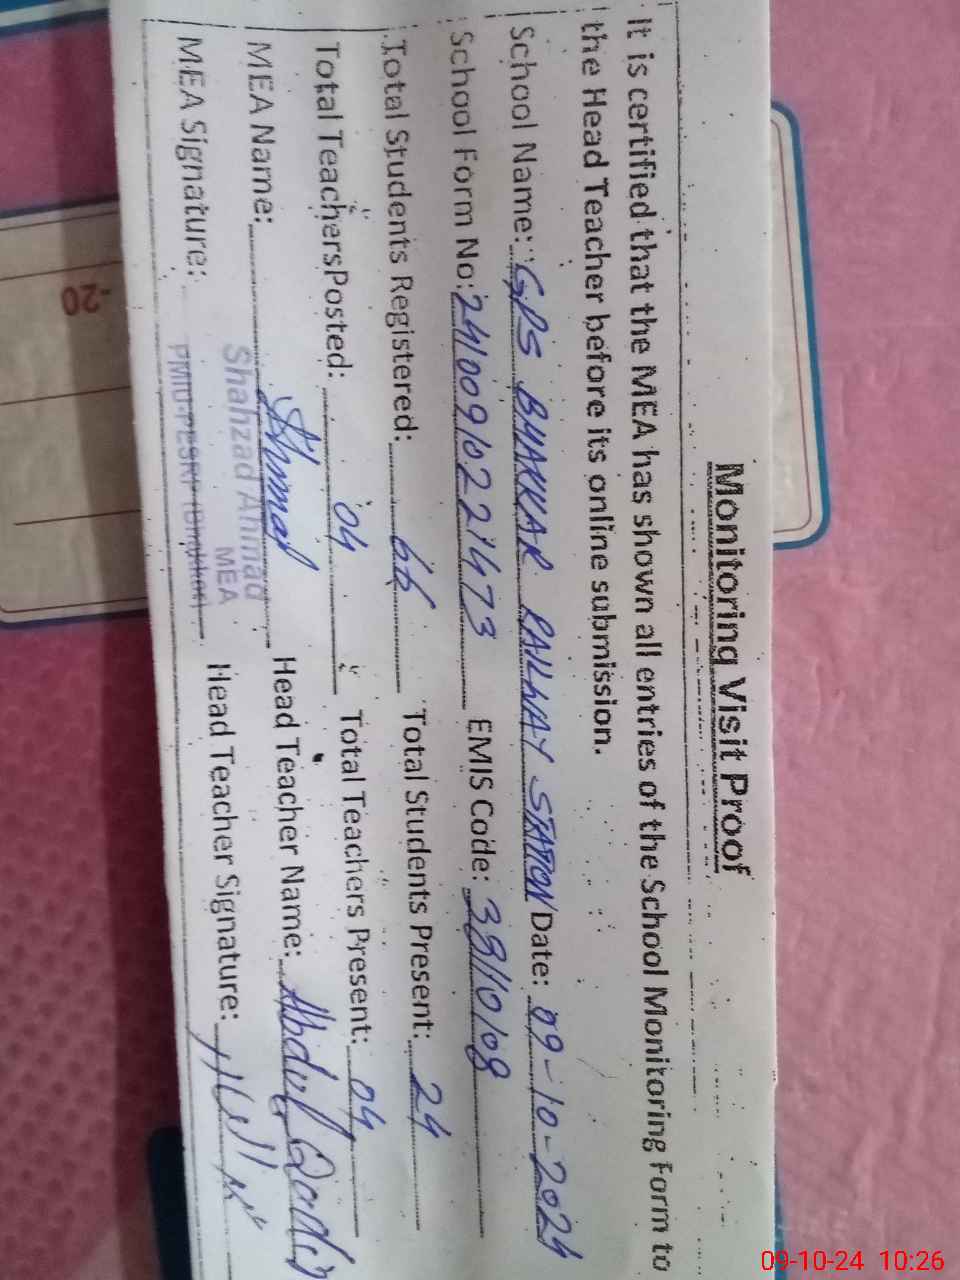 Monitoring Visit Proof
It is certified that the MEA has shown all entries of the School Monitoring Form to
the Head Teacher before its online submission.
School Name: GPS BHAKKAR RAILWAY STATION Date: 09-10-2024
School Form No: 24100910221473 EMIS Code: 38110108
Total Students Registered: 66 Total Students Present: 24
Total TeachersPosted: 04 Total Teachers Present: 04
MEA Name: Head Teacher Name: Abdul Qadir
Shahzad Ahmad
MEA
PMIU-PESRP (Bhakkar)
MEA Signature: Head Teacher Signature:
-20
09-10-24 10:26